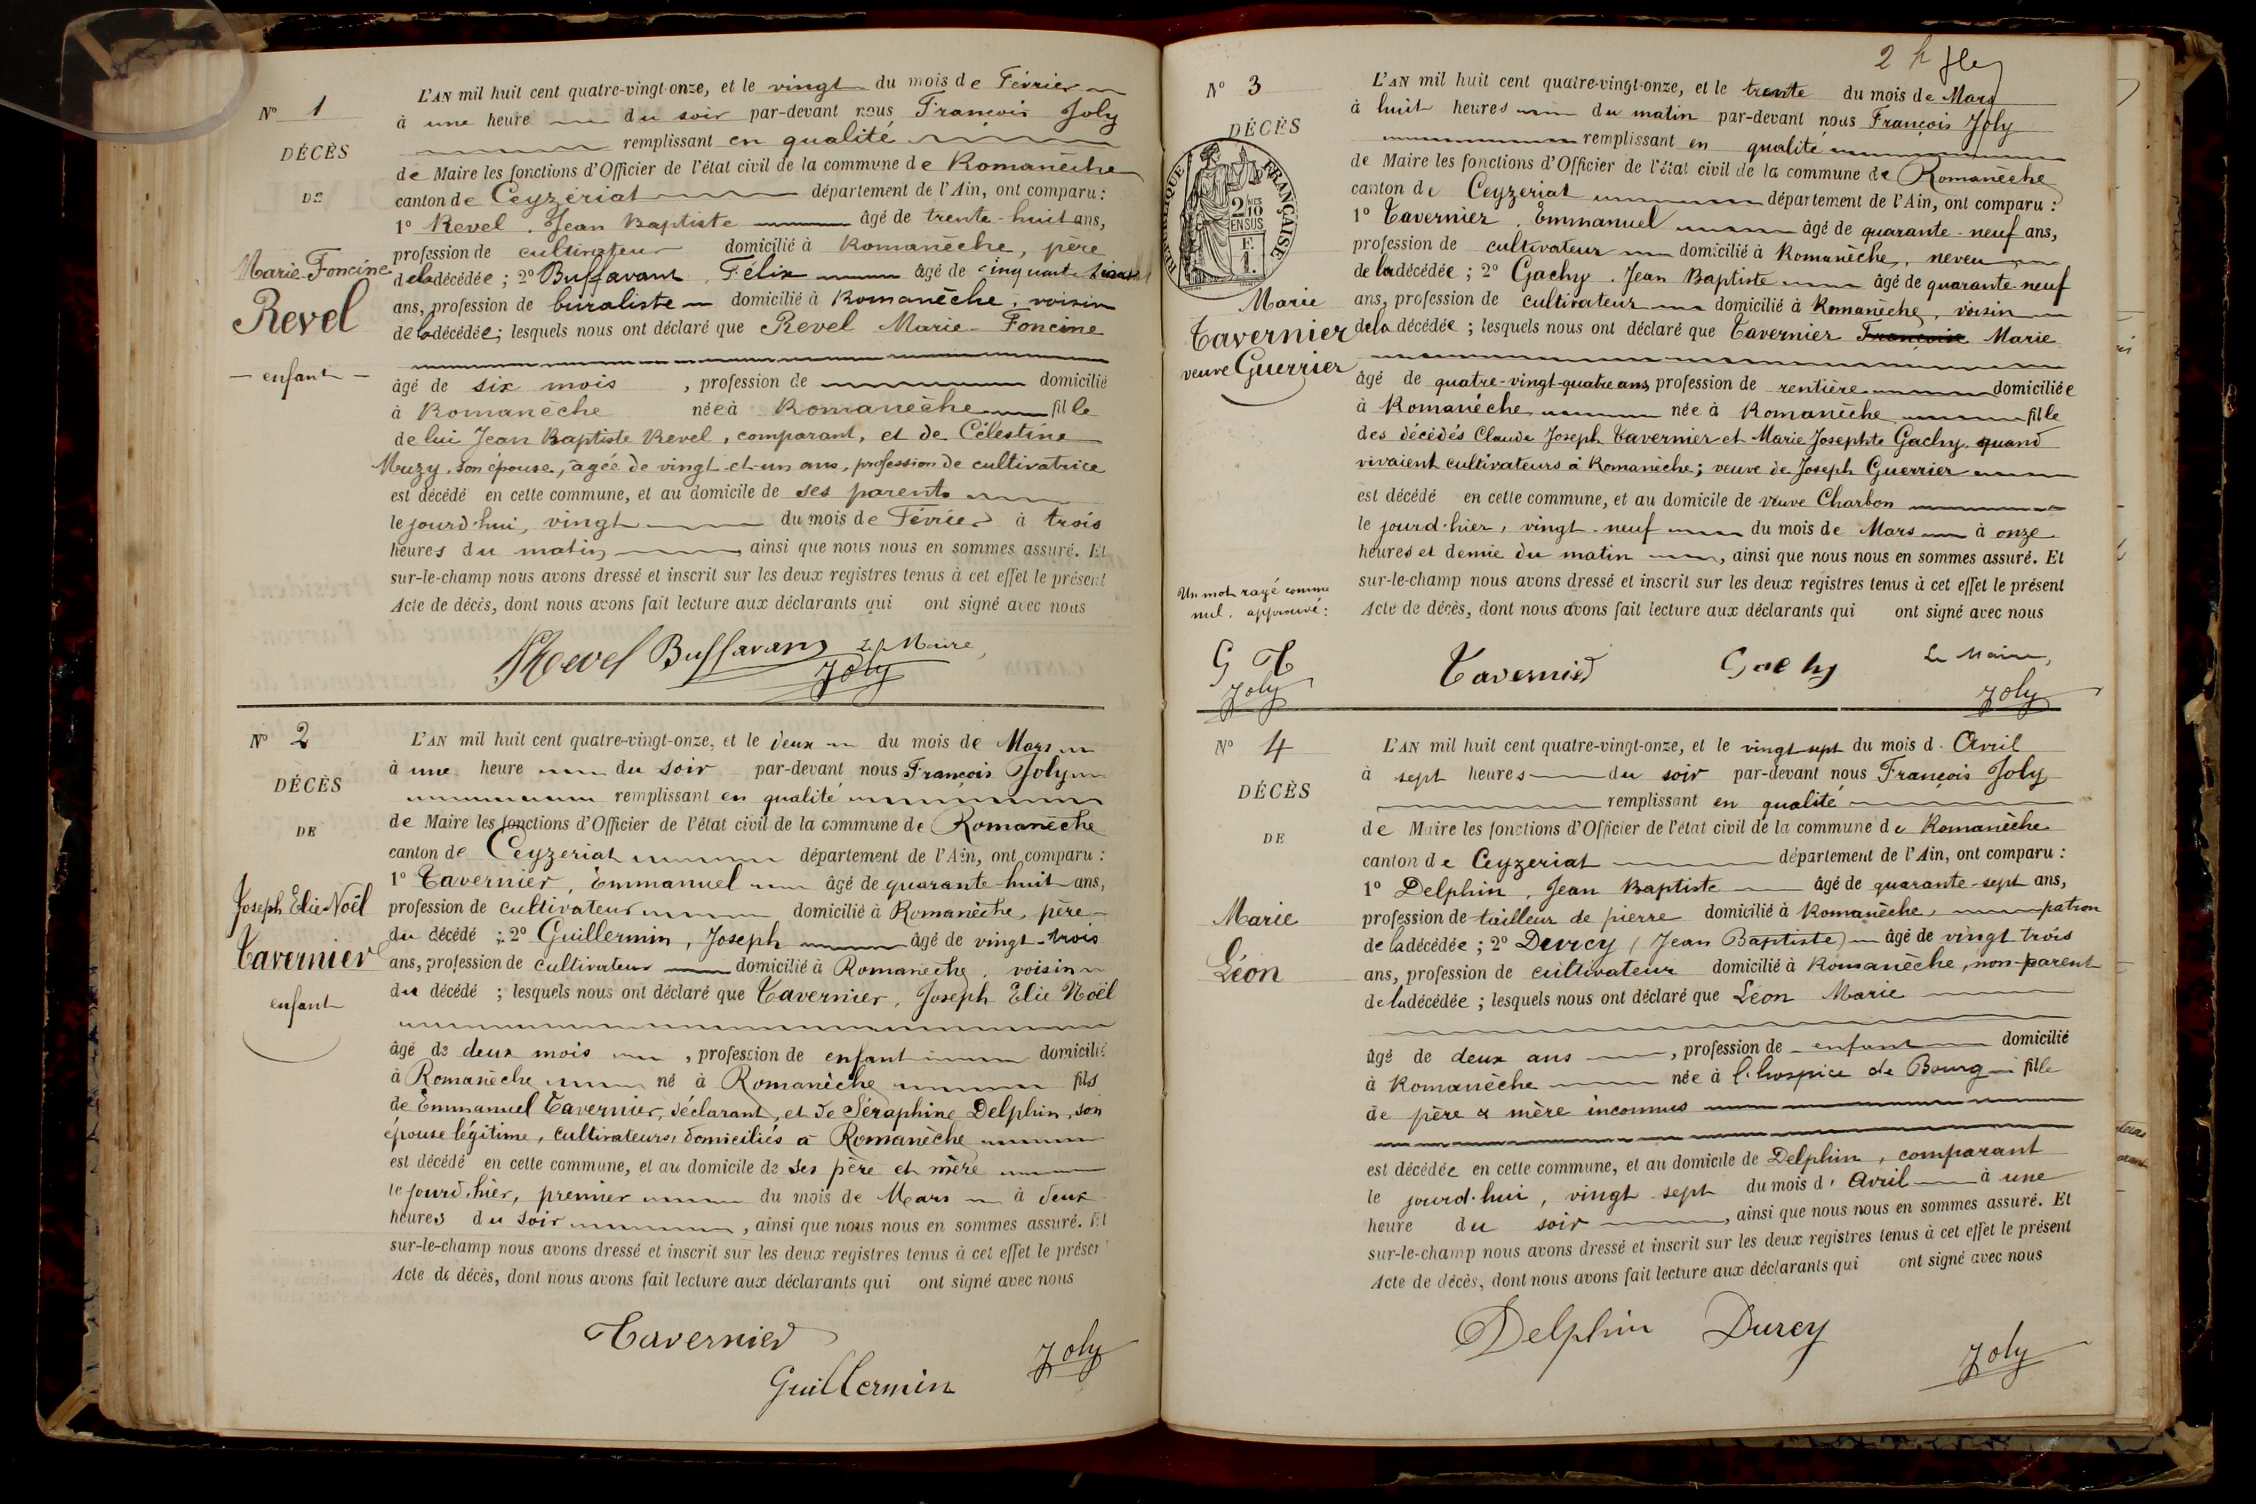 N° 1
DÉCÈS
DE
Marie-Foncine
Revel
— enfant —
L'AN mil huit cent quatre-vingt-onze, et le vingt du mois de Février
à une heure du soir par-devant nous François Joly
remplissant en qualité
de Maire les fonctions d'Officier de l'état civil de la commune de Romanèche
canton de Ceyzériat département de l'Ain, ont comparu :
1° Revel, Jean Baptiste âgé de trente-huit ans,
profession de cultivateur domicilié à Romanèche, père
de la décédée ; 2° Buffavant, Félix âgé de cinquante
ans, profession de buraliste domicilié à Romanèche, voisin
de la décédée ; lesquels nous ont déclaré que Revel Marie-Foncine
âgé de six mois , profession de domicilié
à Romanèche née à Romanèche fille
de lui Jean Baptiste Revel, comparant, et de Célestine
Muzy, son épouse, âgée de vingt-et-un ans, profession de cultivatrice
est décédé en cette commune, et au domicile de ses parents
le jourd'hui, vingt du mois de Février à trois
heures du matin , ainsi que nous nous en sommes assuré. Et
sur-le-champ nous avons dressé et inscrit sur les deux registres tenus à cet effet le présent
Acte de décès, dont nous avons fait lecture aux déclarants qui ont signé avec nous
Revel Buffavan Le Maire,
Joly
N° 2
DÉCÈS
DE
Joseph Elie Noël
Tavernier
enfant
L'AN mil huit cent quatre-vingt-onze, et le deux du mois de Mars
à une heure du soir par-devant nous François Joly
remplissant en qualité
de Maire les fonctions d'Officier de l'état civil de la commune de Romanèche
canton de Ceyzeriat département de l'Ain, ont comparu :
1° Tavernier, Emmanuel âgé de quarante-huit ans,
profession de cultivateur domicilié à Romanèche, père
du décédé ; 2° Guillermin, Joseph âgé de vingt-trois
ans, profession de cultivateur domicilié à Romanèche, voisin
du décédé ; lesquels nous ont déclaré que Tavernier, Joseph Elie Noël
âgé de deux mois , profession de enfant domicilié
à Romanèche né à Romanèche fils
de Emmanuel Tavernier, déclarant, et de Séraphine Delphin, son
épouse légitime, cultivateurs domiciliés à Romanèche
est décédé en cette commune, et au domicile de ses père et mère
le jourd'hier, premier du mois de Mars à deux
heures du soir , ainsi que nous nous en sommes assuré. Et
sur-le-champ nous avons dressé et inscrit sur les deux registres tenus à cet effet le présent
Acte de décès, dont nous avons fait lecture aux déclarants qui ont signé avec nous
Tavernier
Guillermin
Joly
N° 3
DÉCÈS
RÉPUBLIQUE FRANÇAISE
2/10 EN SUS
F. 1.
Marie
Tavernier
veuve Guerrier
Un mot rayé comme
nul. approuvé :
G T
Joly
L'AN mil huit cent quatre-vingt-onze, et le trente du mois de Mars
à huit heures du matin par-devant nous François Joly
remplissant en qualité
de Maire les fonctions d'Officier de l'état civil de la commune de Romanèche
canton de Ceyzeriat département de l'Ain, ont comparu :
1° Tavernier, Emmanuel âgé de quarante-neuf ans,
profession de cultivateur domicilié à Romanèche, neveu
de la décédée ; 2° Gachy, Jean Baptiste âgé de quarante-neuf
ans, profession de cultivateur domicilié à Romanèche, voisin
de la décédée ; lesquels nous ont déclaré que Tavernier Françoise Marie
âgé de quatre-vingt-quatre ans, profession de rentière domiciliée
à Romanèche née à Romanèche fille
des décédés Claude Joseph Tavernier et Marie Josephte Gachy, quand
vivaient cultivateurs à Romanèche ; veuve de Joseph Guerrier
est décédé en cette commune, et au domicile de veuve Charbon
le jourd'hier, vingt-neuf du mois de Mars à onze
heures et demie du matin , ainsi que nous nous en sommes assuré. Et
sur-le-champ nous avons dressé et inscrit sur les deux registres tenus à cet effet le présent
Acte de décès, dont nous avons fait lecture aux déclarants qui ont signé avec nous
Tavernier Gachy Le Maire,
Joly
N° 4
DÉCÈS
DE
Marie
Léon
L'AN mil huit cent quatre-vingt-onze, et le vingt sept du mois d' Avril
à sept heures du soir par-devant nous François Joly
remplissant en qualité
de Maire les fonctions d'Officier de l'état civil de la commune de Romanèche
canton de Ceyzeriat département de l'Ain, ont comparu :
1° Delphin, Jean Baptiste âgé de quarante-sept ans,
profession de tailleur de pierre domicilié à Romanèche, patron
de la décédée ; 2° Durcy (Jean Baptiste) âgé de vingt trois
ans, profession de cultivateur domicilié à Romanèche, non-parent
de la décédée ; lesquels nous ont déclaré que Léon Marie
âgé de deux ans , profession de enfant domicilié
à Romanèche née à l'hospice de Bourg fille
de père & mère inconnus
est décédée en cette commune, et au domicile de Delphin, comparant
le jourd'hui, vingt-sept du mois d' Avril à une
heure du soir , ainsi que nous nous en sommes assuré. Et
sur-le-champ nous avons dressé et inscrit sur les deux registres tenus à cet effet le présent
Acte de décès, dont nous avons fait lecture aux déclarants qui ont signé avec nous
Delphin Durcy
Joly